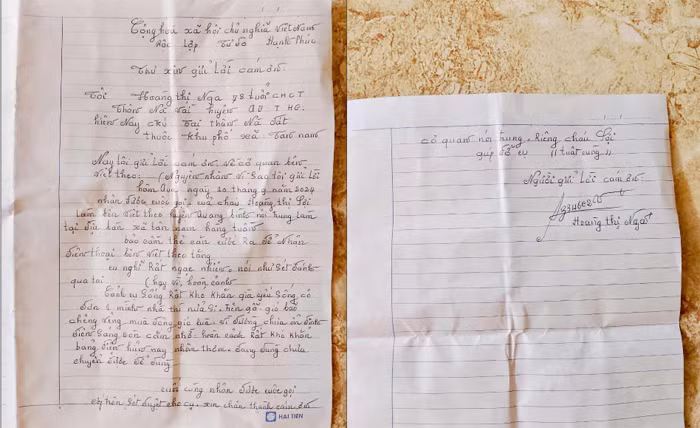 Cộng hòa xã hội chủ nghĩa Việt Nam
độc lập tự do Hạnh Phúc
Thư xin gửi Lời cám ơn.
Tôi Hoàng Thị Nga 78 tuổi CHCT
hiện Nay chú tại thôn Nà đất
thuộc khu phố xã Tân nam
Nay tôi gửi Lời cám ơn. về cơ quan bên
Viết theo: (Nguyên nhân vì Sao tôi gửi Lời
hôm Qua ngày 20 tháng 9 năm 2024
nhận được cuộc gọi của cháu Hoàng thị Sợi
Làm bên viết theo huyện Quang bình nói chung Làm
tại địa bàn xã tân nam hàng tuần
báo cầm thẻ căn cước Ra để Nhận
điện thoại bên viết theo tặng.
cụ nghĩ Rất ngạc nhiên. nói như Sét đánh
qua tai (hay vì hoàn cảnh
cảnh cụ Sống Rất Khó Khăn già yếu Sống có
đơn 1 mình nhà thì nửa Sàn. trên gác gió bão
chống riêng mưa đông gió lùa. vì đường chưa ổn định
điện Sáng bên cắm nhờ hoàn cảnh Rất Khó Khăn
bảng điện hôm nay nhận thêm. đang dùng chưa
chuyển được để dùng
cuối cùng nhận được cuộc gọi
chị trên Sét duyệt cho cụ. xin chân thành cám ơn
HAI TIEN
cơ quan nói chung. Riêng cháu Sợi
giúp đỡ cụ //tuất cùng.//
Người gửi Lời cám ơn
Hoàng thị Nga